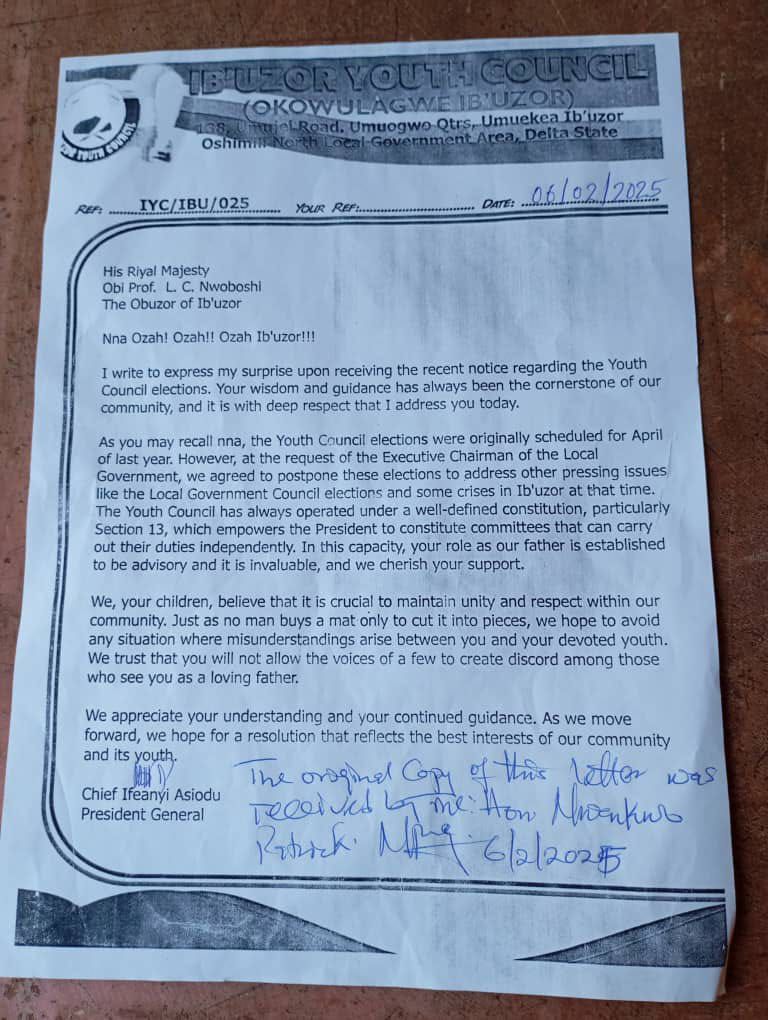 IB'UZOR YOUTH COUNCIL
(OKOWULAGWE IB'UZOR)
138, Umujei Road, Umuogwo Qtrs, Umuekea Ib'uzor
Oshimili North Local Government Area, Delta State
YOUTH COUNCIL
REF: IYC/IBU/025 YOUR REF: DATE: 06/02/2025
His Riyal Majesty
Obi Prof. L. C. Nwoboshi
The Obuzor of Ib'uzor
Nna Ozah! Ozah!! Ozah Ib'uzor!!!
I write to express my surprise upon receiving the recent notice regarding the Youth
Council elections. Your wisdom and guidance has always been the cornerstone of our
community, and it is with deep respect that I address you today.
As you may recall nna, the Youth Council elections were originally scheduled for April
of last year. However, at the request of the Executive Chairman of the Local
Government, we agreed to postpone these elections to address other pressing issues
like the Local Government Council elections and some crises in Ib'uzor at that time.
The Youth Council has always operated under a well-defined constitution, particularly
Section 13, which empowers the President to constitute committees that can carry
out their duties independently. In this capacity, your role as our father is established
to be advisory and it is invaluable, and we cherish your support.
We, your children, believe that it is crucial to maintain unity and respect within our
community. Just as no man buys a mat only to cut it into pieces, we hope to avoid
any situation where misunderstandings arise between you and your devoted youth.
We trust that you will not allow the voices of a few to create discord among those
who see you as a loving father.
We appreciate your understanding and your continued guidance. As we move
forward, we hope for a resolution that reflects the best interests of our community
and its youth.
Chief Ifeanyi Asiodu
President General
The original Copy of this letter was
received by me: Hon
Patrick. 6/2/2025